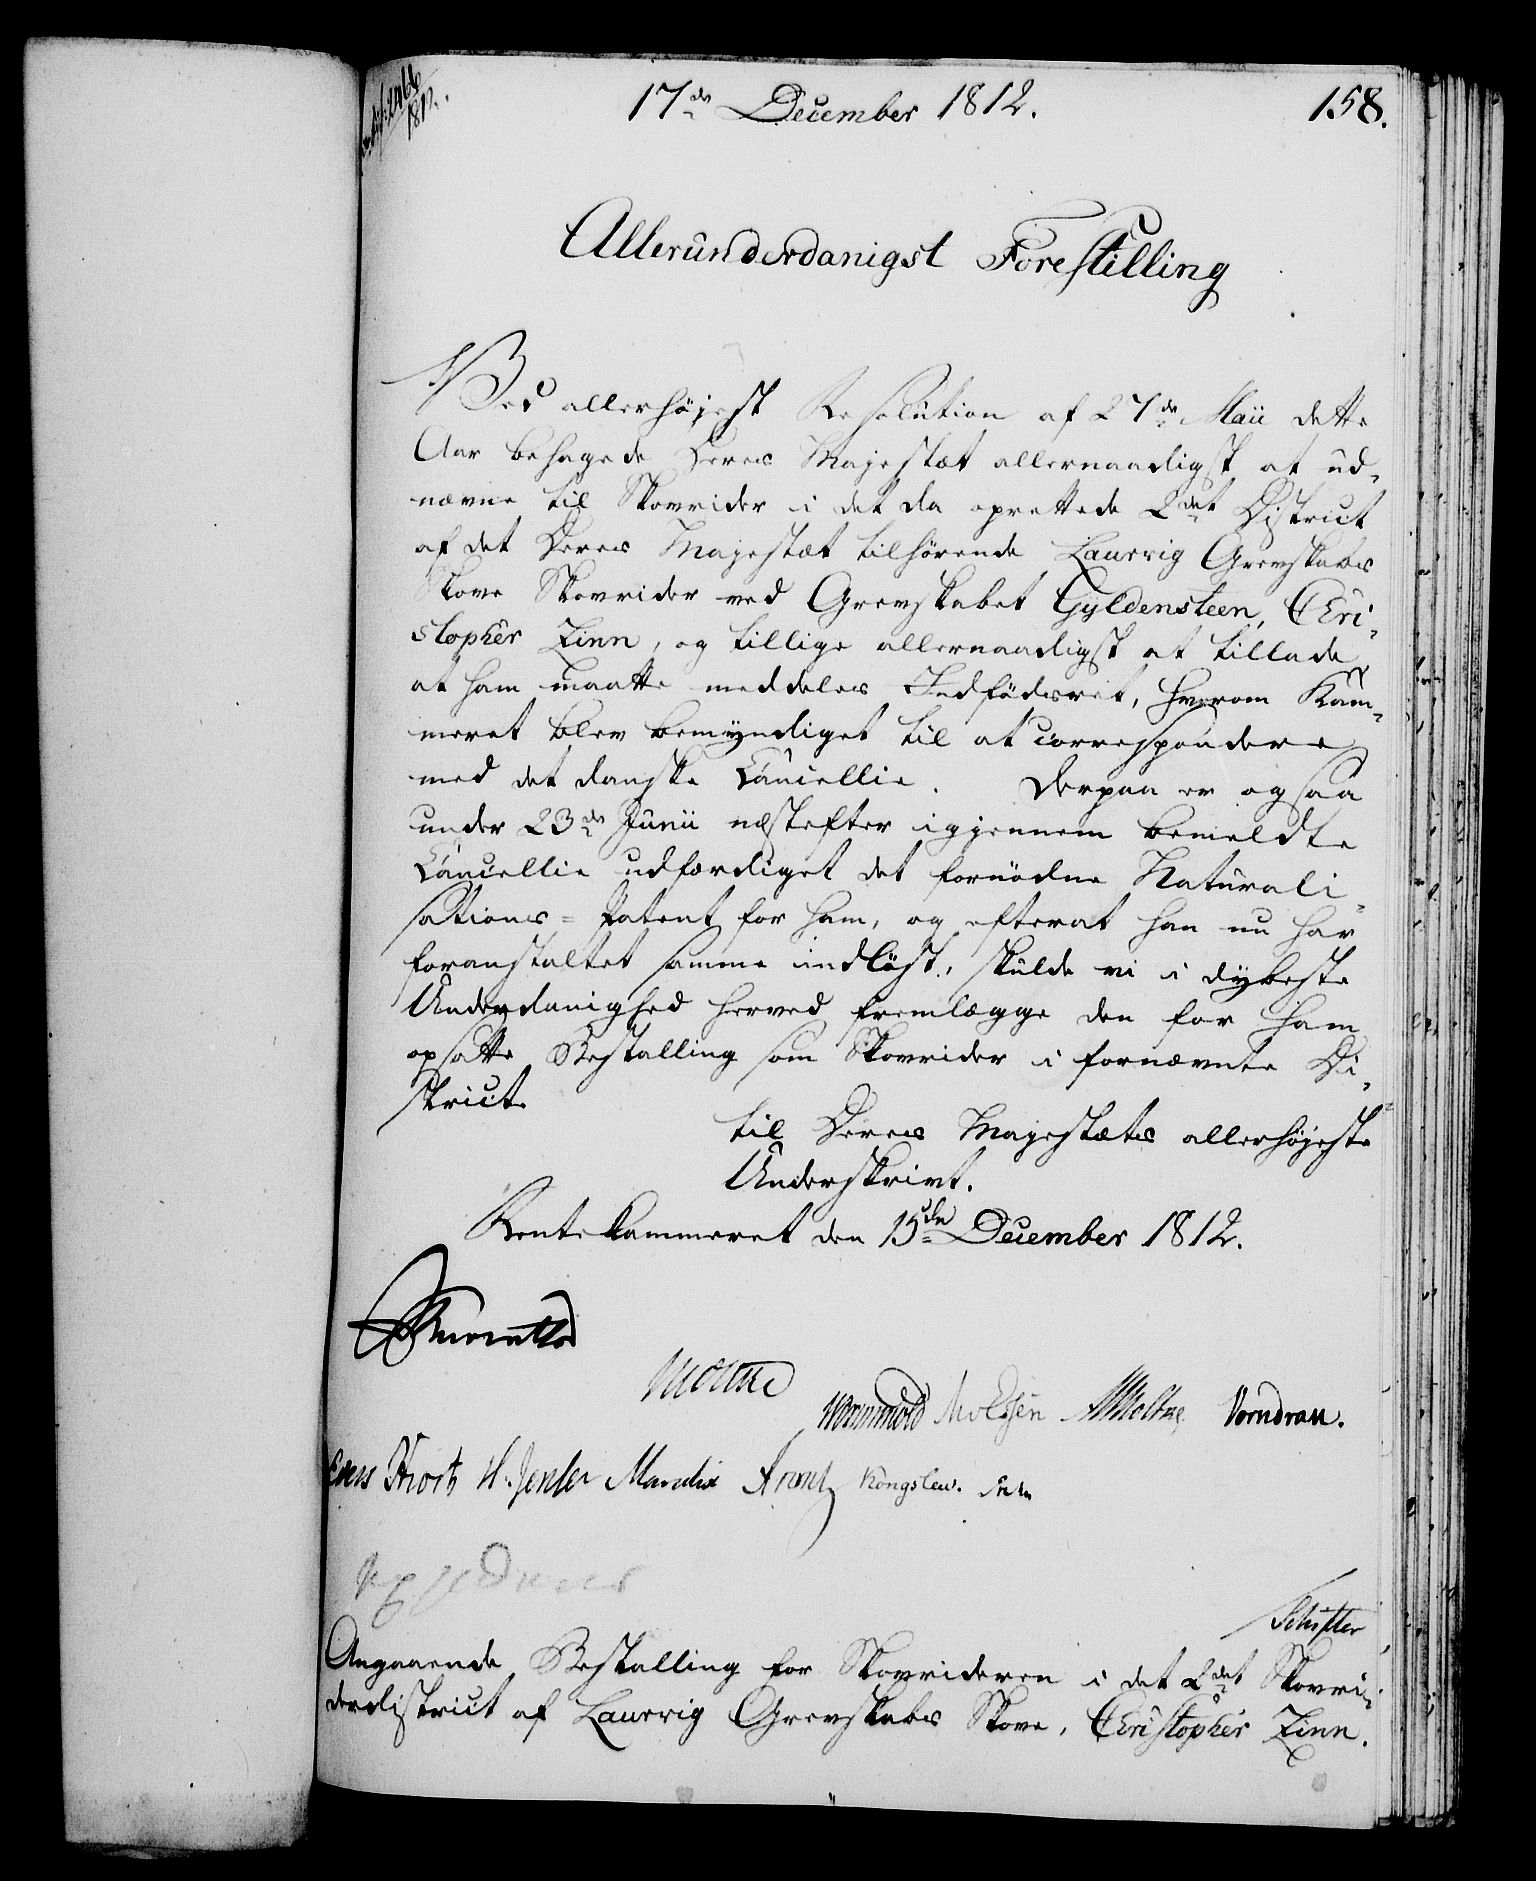 17de December 1812.
158.
Allerunderdanigst Forestilling
Ved allerhöjest Resolution af 27de Maii dette
Aar behagede Deres Majestæt allernaadigst at ud-
nævne til Skovrider i det da oprettede 2det District
af det Deres Majestæt tilhörende Laurvig Grevskabs
Skove Skovrider ved Grevskabet Gyldensteen, Chri-
stopher Zinn, og tillige allernaadigst at tillade
at ham maatte meddeles Indfödsret, hvorom Kam-
meret blev bemyndiget til at correspondere
med det danske Cancellie. Derpaa er ogsaa
under 23de Junii næstefter igjennem bemeldte
Cancellie udfærdiget det fornödne Naturali-
sations-Patent for ham, og efterat han nu har
foranstaltet samme indlöst, skulde vi i dybeste
Underdanighed herved fremlægge den for ham
opsatte Bestalling som Skovrider i fornævnte Di-
strict
til Deres Majestæts allerhöjeste
Underskrivt.
Rentekammeret den 15de December 1812.
Wormskiold Moltke Vorndran.
Hiort H. Jensen Arentz Kongslew.
Schiötter
Angaaende Bestalling for Skovrideren i det 2det Skovri-
derdistrict af Laurvig Grevskabs Skove, Christopher Zinn.